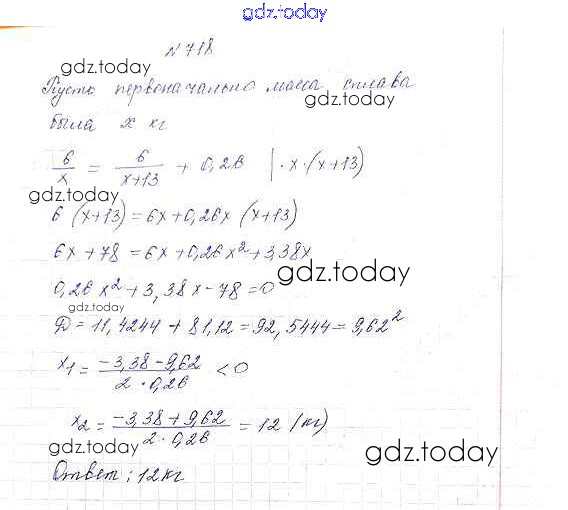 gdz.today
№718
gdz.today
Пусть первоначально масса сплава
gdz.today
была x кг
6/x = 6/(x+13) + 0,26 | · x · (x+13)
gdz.today
6 (x+13) = 6x + 0,26x (x+13)
6x + 78 = 6x + 0,26x² + 3,38x
gdz.today
0,26x² + 3,38x - 78 = 0
gdz.today
Д = 11,4244 + 81,12 = 92,5444 = 9,62²
x₁ = (-3,38 - 9,62)/(2 · 0,26) < 0
x₂ = (-3,38 + 9,62)/(2 · 0,26) = 12 (кг)
gdz.today
gdz.today
Ответ: 12 кг